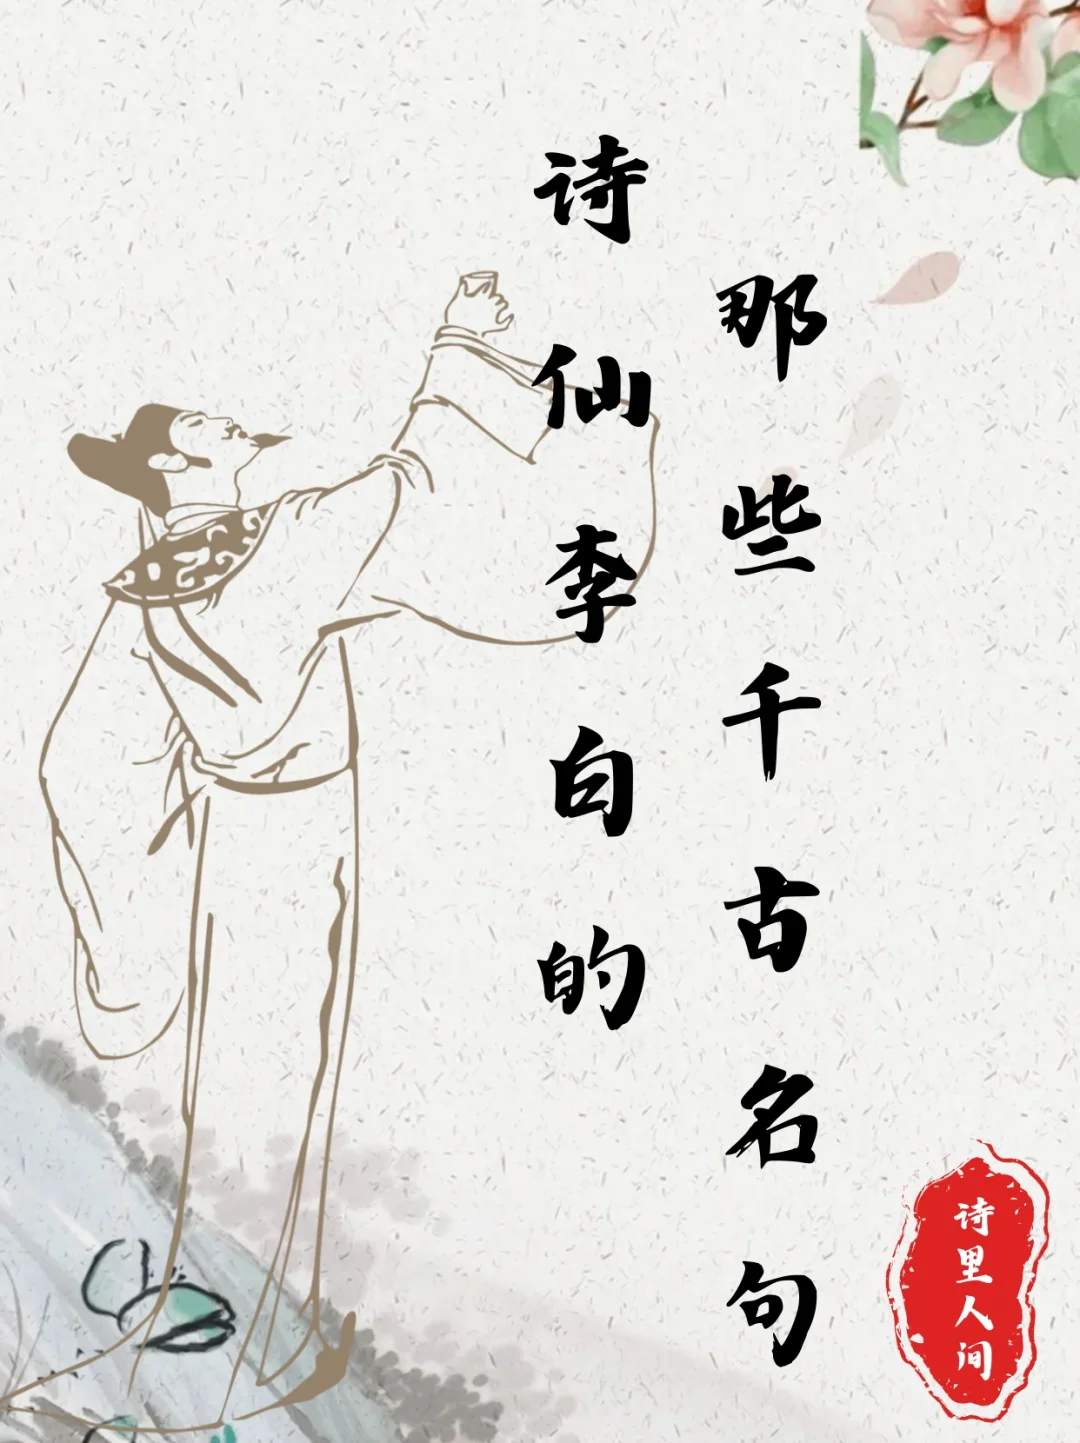 诗仙李白的
那些千古名句
诗里人间